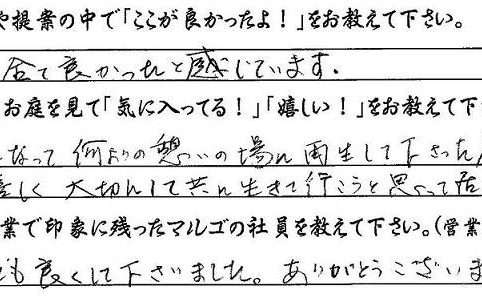 や提案の中で「ここが良かったよ！」をお教えて下さい。
て良かったと感じています.
お庭を見て「気に入ってる！」「嬉しい！」をお教えて下
なって 何よりの憩いの場に再生して下さった
しく 大切にして共に生きて行こうと思って居
業で印象に残ったマルゴの社員を教えて下さい。(営業
も良くして下さいました。ありがとうございま